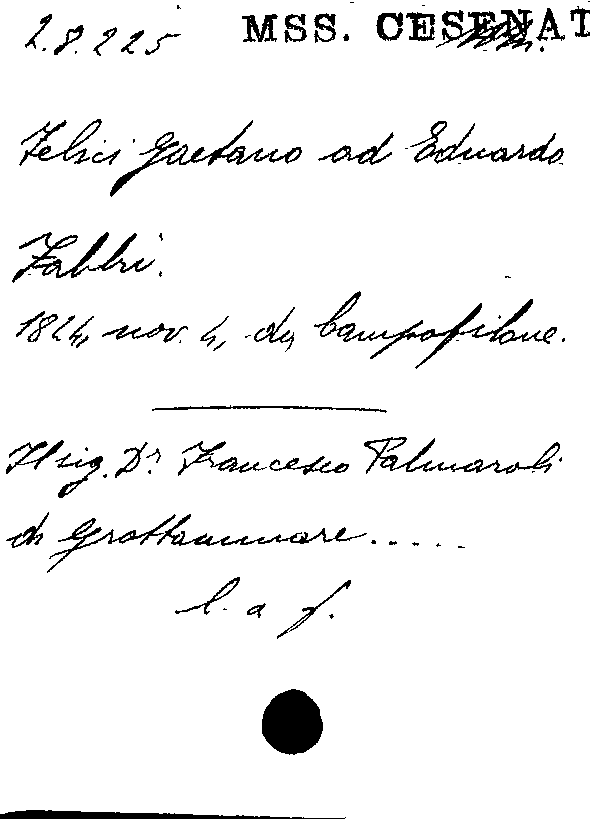 2.8.225 MSS. CESENAT
Felici Gaetano ad Eduardo
Fabbri.
1824, nov. 4, da Campofilone.
Il sig. Dr. Francesco Palmaroli
di Grottammare.....
l. a f.